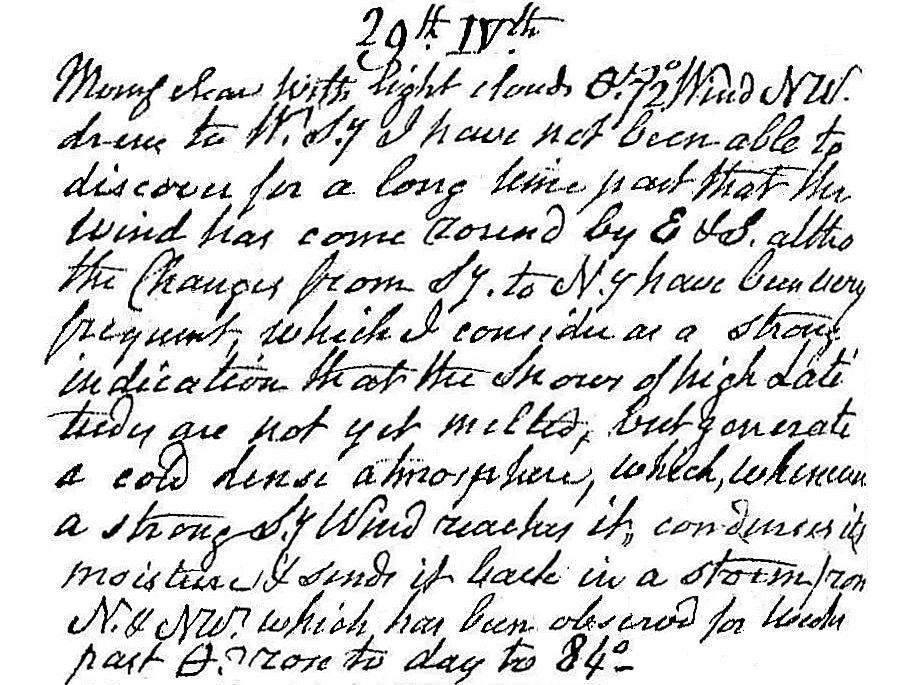 29th IVth
Morng clear with light clouds 72° Wind NW.
drew to W. S.y I have not been able to
discover for a long time past that the
Wind has come round by E & S. altho
the Changes from Sy. to N.y have been very
frequent, which I consider as a strong
indication that the Snows of high Lati
tudes are not yet melted, but generate
a cold dense atmosphere, which, whenever
a strong S.y Wind reaches it, condenses its
moisture & sends it back in a storm from
N. & NW. which has been observed for weeks
past rose to day to 84°-